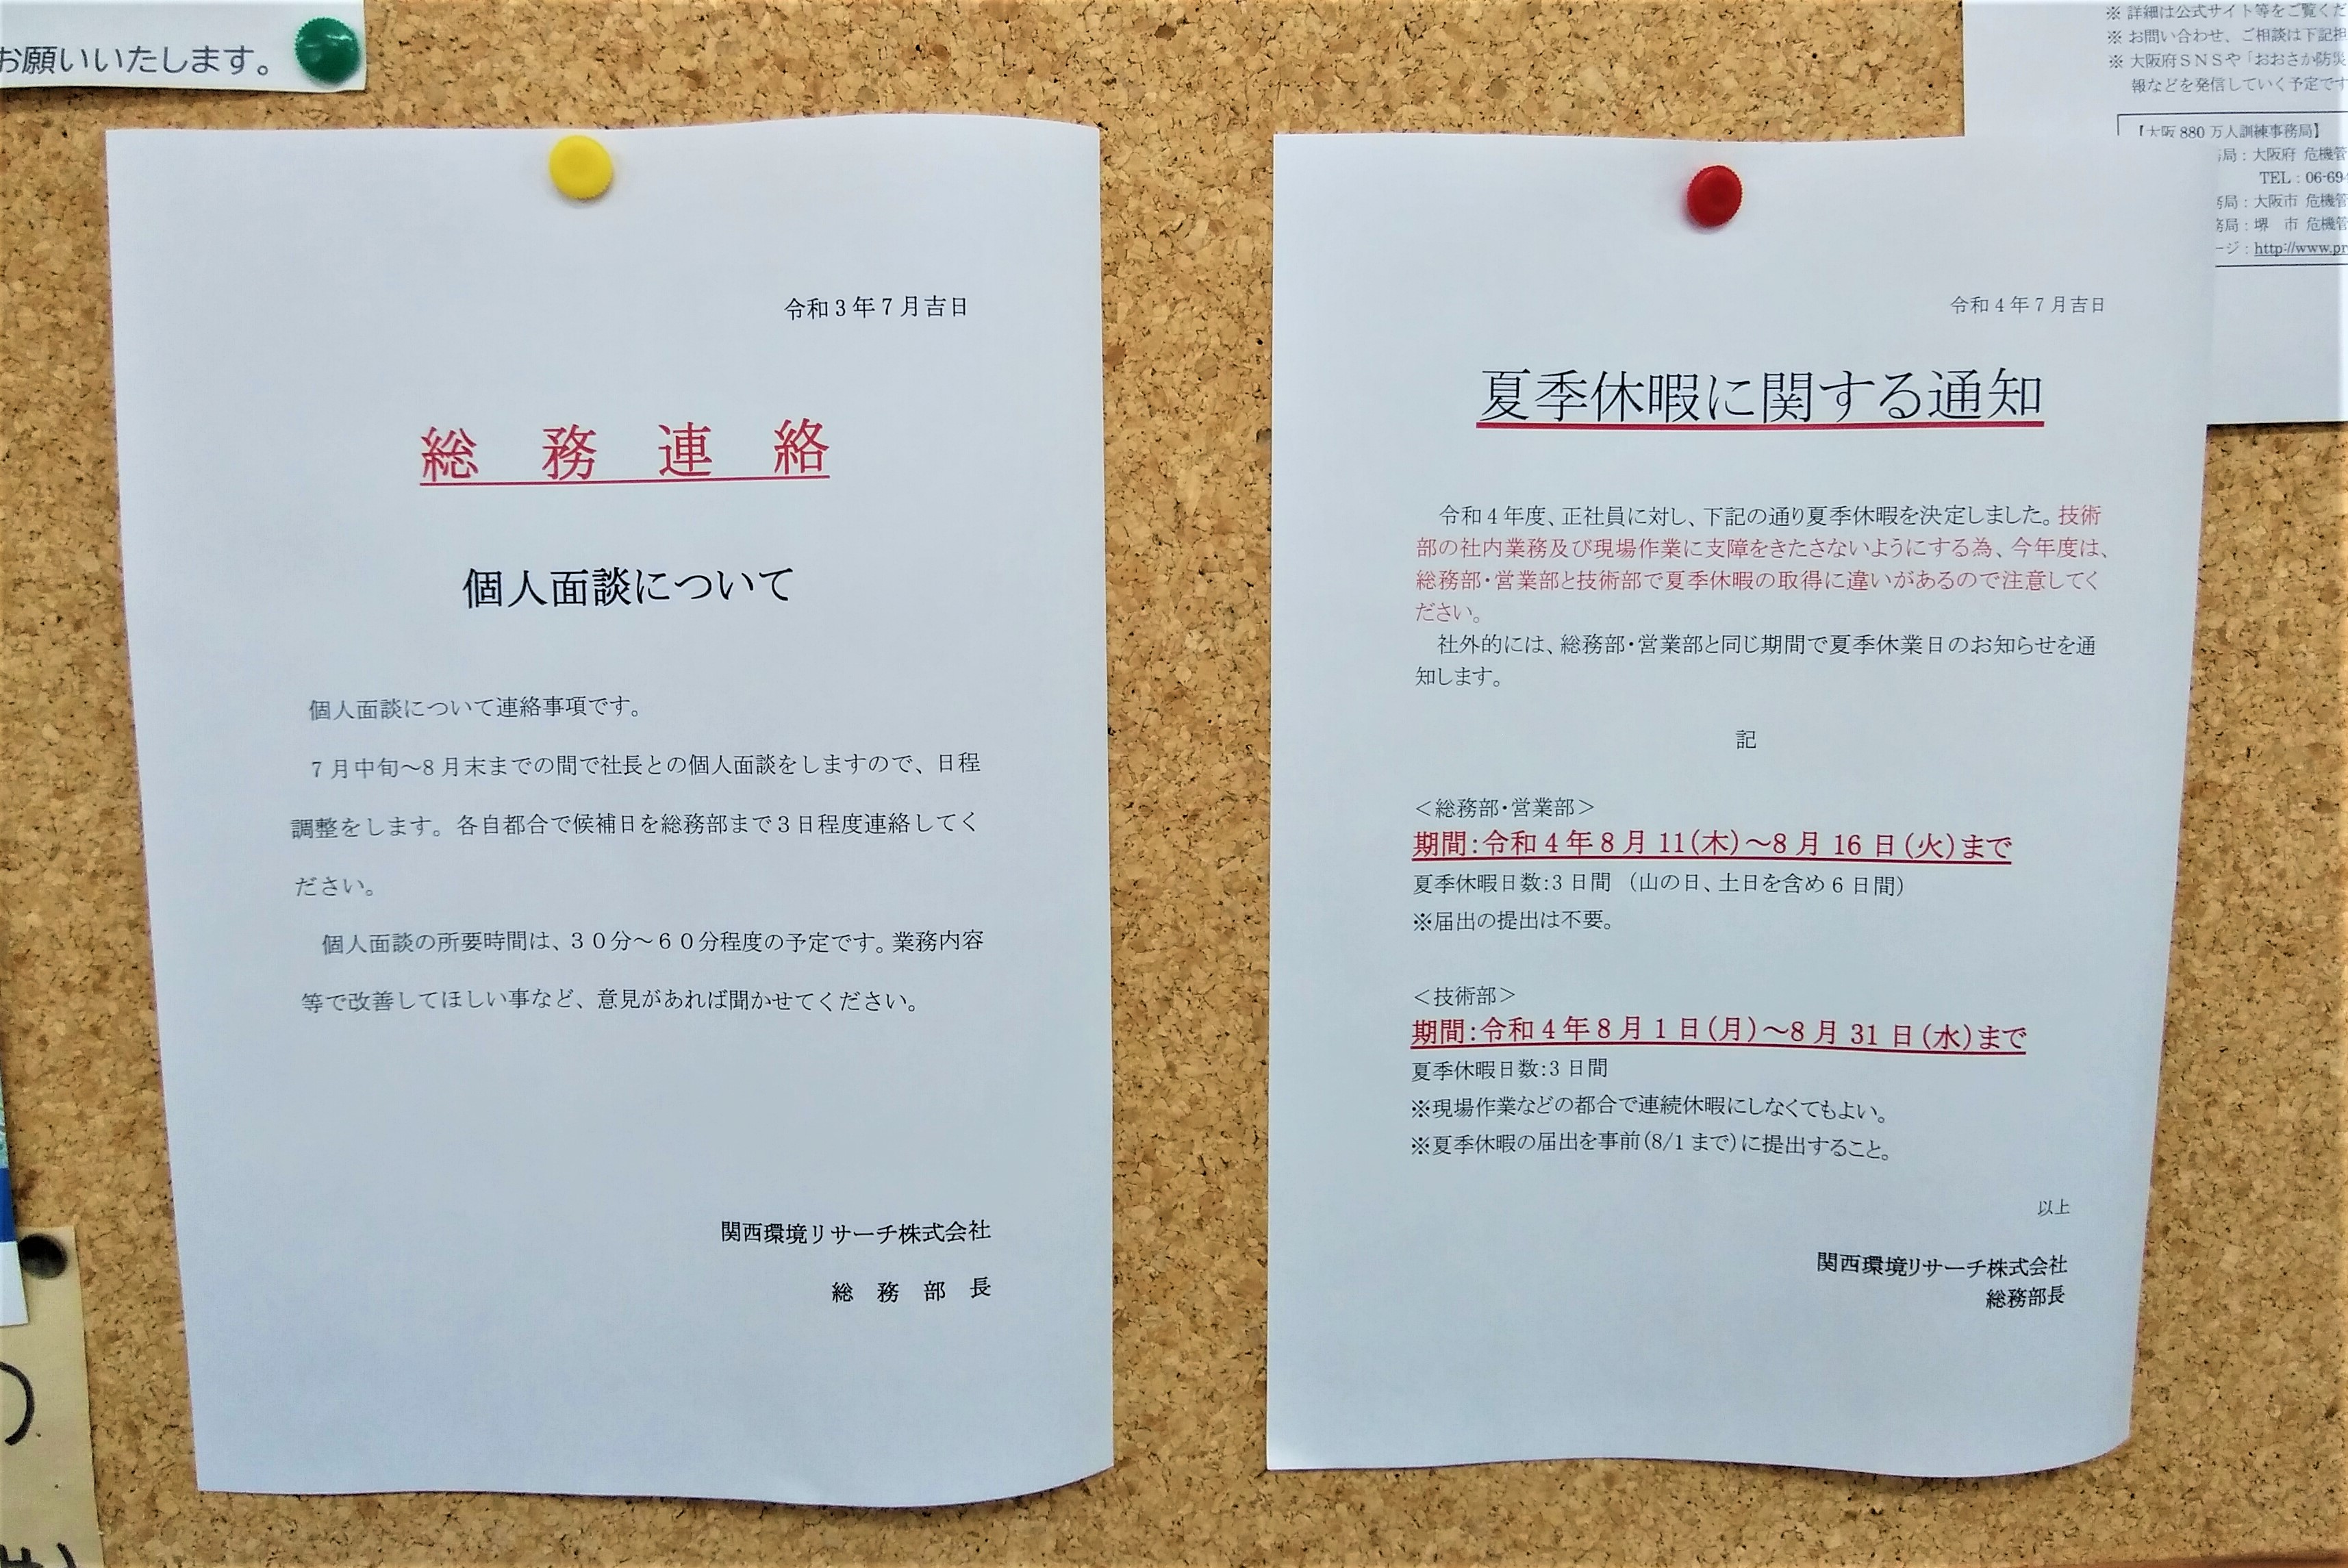 お願いいたします。
令和3年7月吉日
総務連絡
個人面談について
個人面談について連絡事項です。
7月中旬～8月末までの間で社長との個人面談をしますので、日程
調整をします。各自都合で候補日を総務部まで3日程度連絡してく
ださい。
個人面談の所要時間は、30分～60分程度の予定です。業務内容
等で改善してほしい事など、意見があれば聞かせてください。
関西環境リサーチ株式会社
総務部長
令和4年7月吉日
夏季休暇に関する通知
令和4年度、正社員に対し、下記の通り夏季休暇を決定しました。技術
部の社内業務及び現場作業に支障をきたさないようにする為、今年度は、
総務部・営業部と技術部で夏季休暇の取得に違いがあるので注意してく
ださい。
社外的には、総務部・営業部と同じ期間で夏季休業日のお知らせを通
知します。
記
＜総務部・営業部＞
期間：令和4年8月11(木)～8月16日(火)まで
夏季休暇日数:3日間 (山の日、土日を含め6日間)
※届出の提出は不要。
＜技術部＞
期間：令和4年8月1日(月)～8月31日(水)まで
夏季休暇日数:3日間
※現場作業などの都合で連続休暇にしなくてもよい。
※夏季休暇の届出を事前(8/1まで)に提出すること。
以上
関西環境リサーチ株式会社
総務部長
※ 詳細は公式サイト等をご覧くだ
※ お問い合わせ、ご相談は下記担
※ 大阪府SNSや「おおさか防災
報などを発信していく予定です
【大阪880万人訓練事務局】
局：大阪府 危機管
TEL：06-69
務局：大阪市 危機管
務局：堺 市 危機管
ージ：http://www.pr